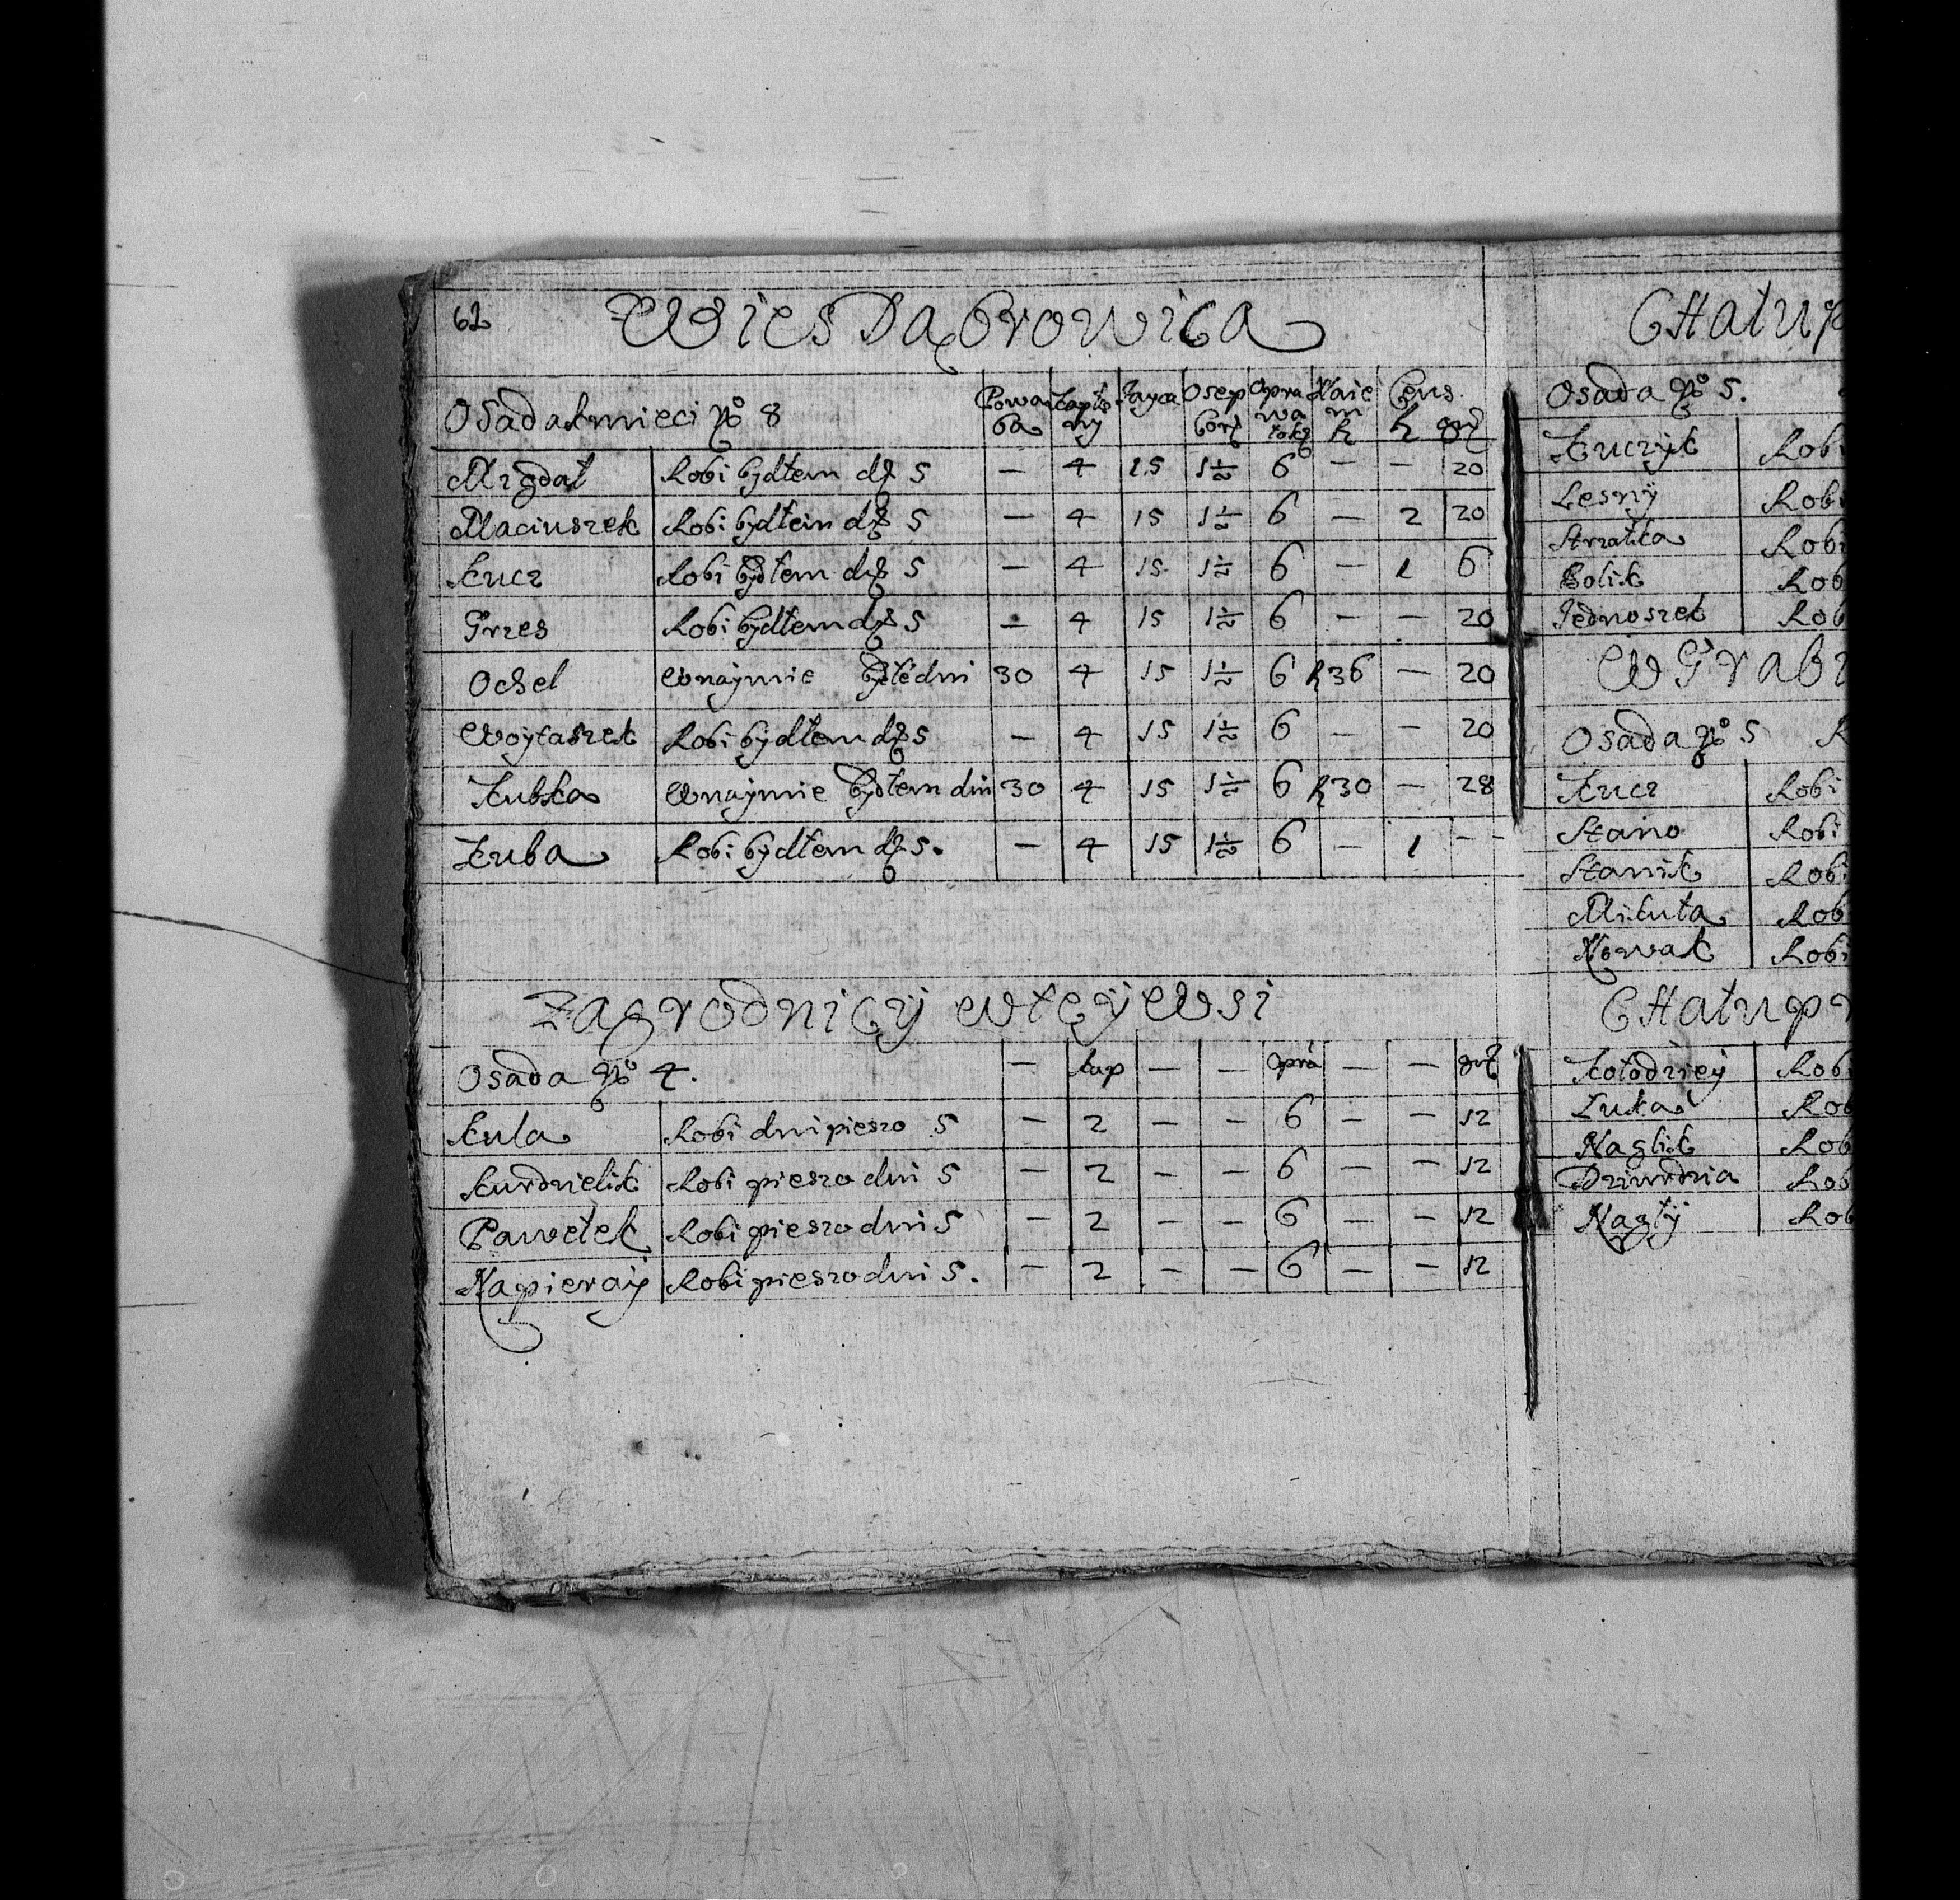 62 Wies Dąbrowica
Osada kmieci No 8 Powa ba Kapło ny Jayca Osep Opra wa Naie m Cens
Migdał Robi bydłem 5 — 4 15 1½ 6 — — 20
Maciuszek Robi bydłem 5 — 4 15 1½ 6 — 2 20
Kucz Robi bydłem 5 — 4 15 1½ 6 — 1 6
Grzes Robi bydłem 5 — 4 15 1½ 6 — — 20
Ochel Wnaymie 30 4 15 1½ 6 36 — 20
Woytaszek Robi bydłem 5 — 4 15 1½ 6 — — 20
Kubka Wnaymie bydłem dni 30 4 15 1½ 6 30 — 28
Kuba Robi bydłem 5. — 4 15 1½ 6 — 1 —
Zagrodnicy w tey Wsi
Osada No 4. — kap — — opra — —
Kula Robi dni pieszo 5 — 2 — — 6 — — 12
Kurdzielik Robi pieszo dni 5 — 2 — — 6 — — 12
Pawełek Robi pieszo dni 5 — 2 — — 6 — — 12
Napieray Robi pieszo dni 5. — 2 — — 6 — — 12
CHałup
Osada No 5.
Kuczyk Robi
Lesny Robi
Robi
Rob
Jednoszek Rob
W Grab
Osada No 5 R
Kucz Robi
Stano Robi
Stanik Robi
Mikuła Rob
Nowak Robi
CHałupn
Kołodziey Rob
Rob
Naglik Rob
Rob
Nagły Rob